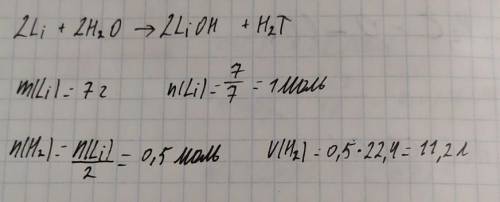 2Li + 2H₂O → 2LiOH + H₂↑
m(Li) = 7 г n(Li) = 7/7 = 1 моль
n(H₂) = n(Li)/2 = 0,5 моль V(H₂) = 0,5·22,4 = 11,2 л